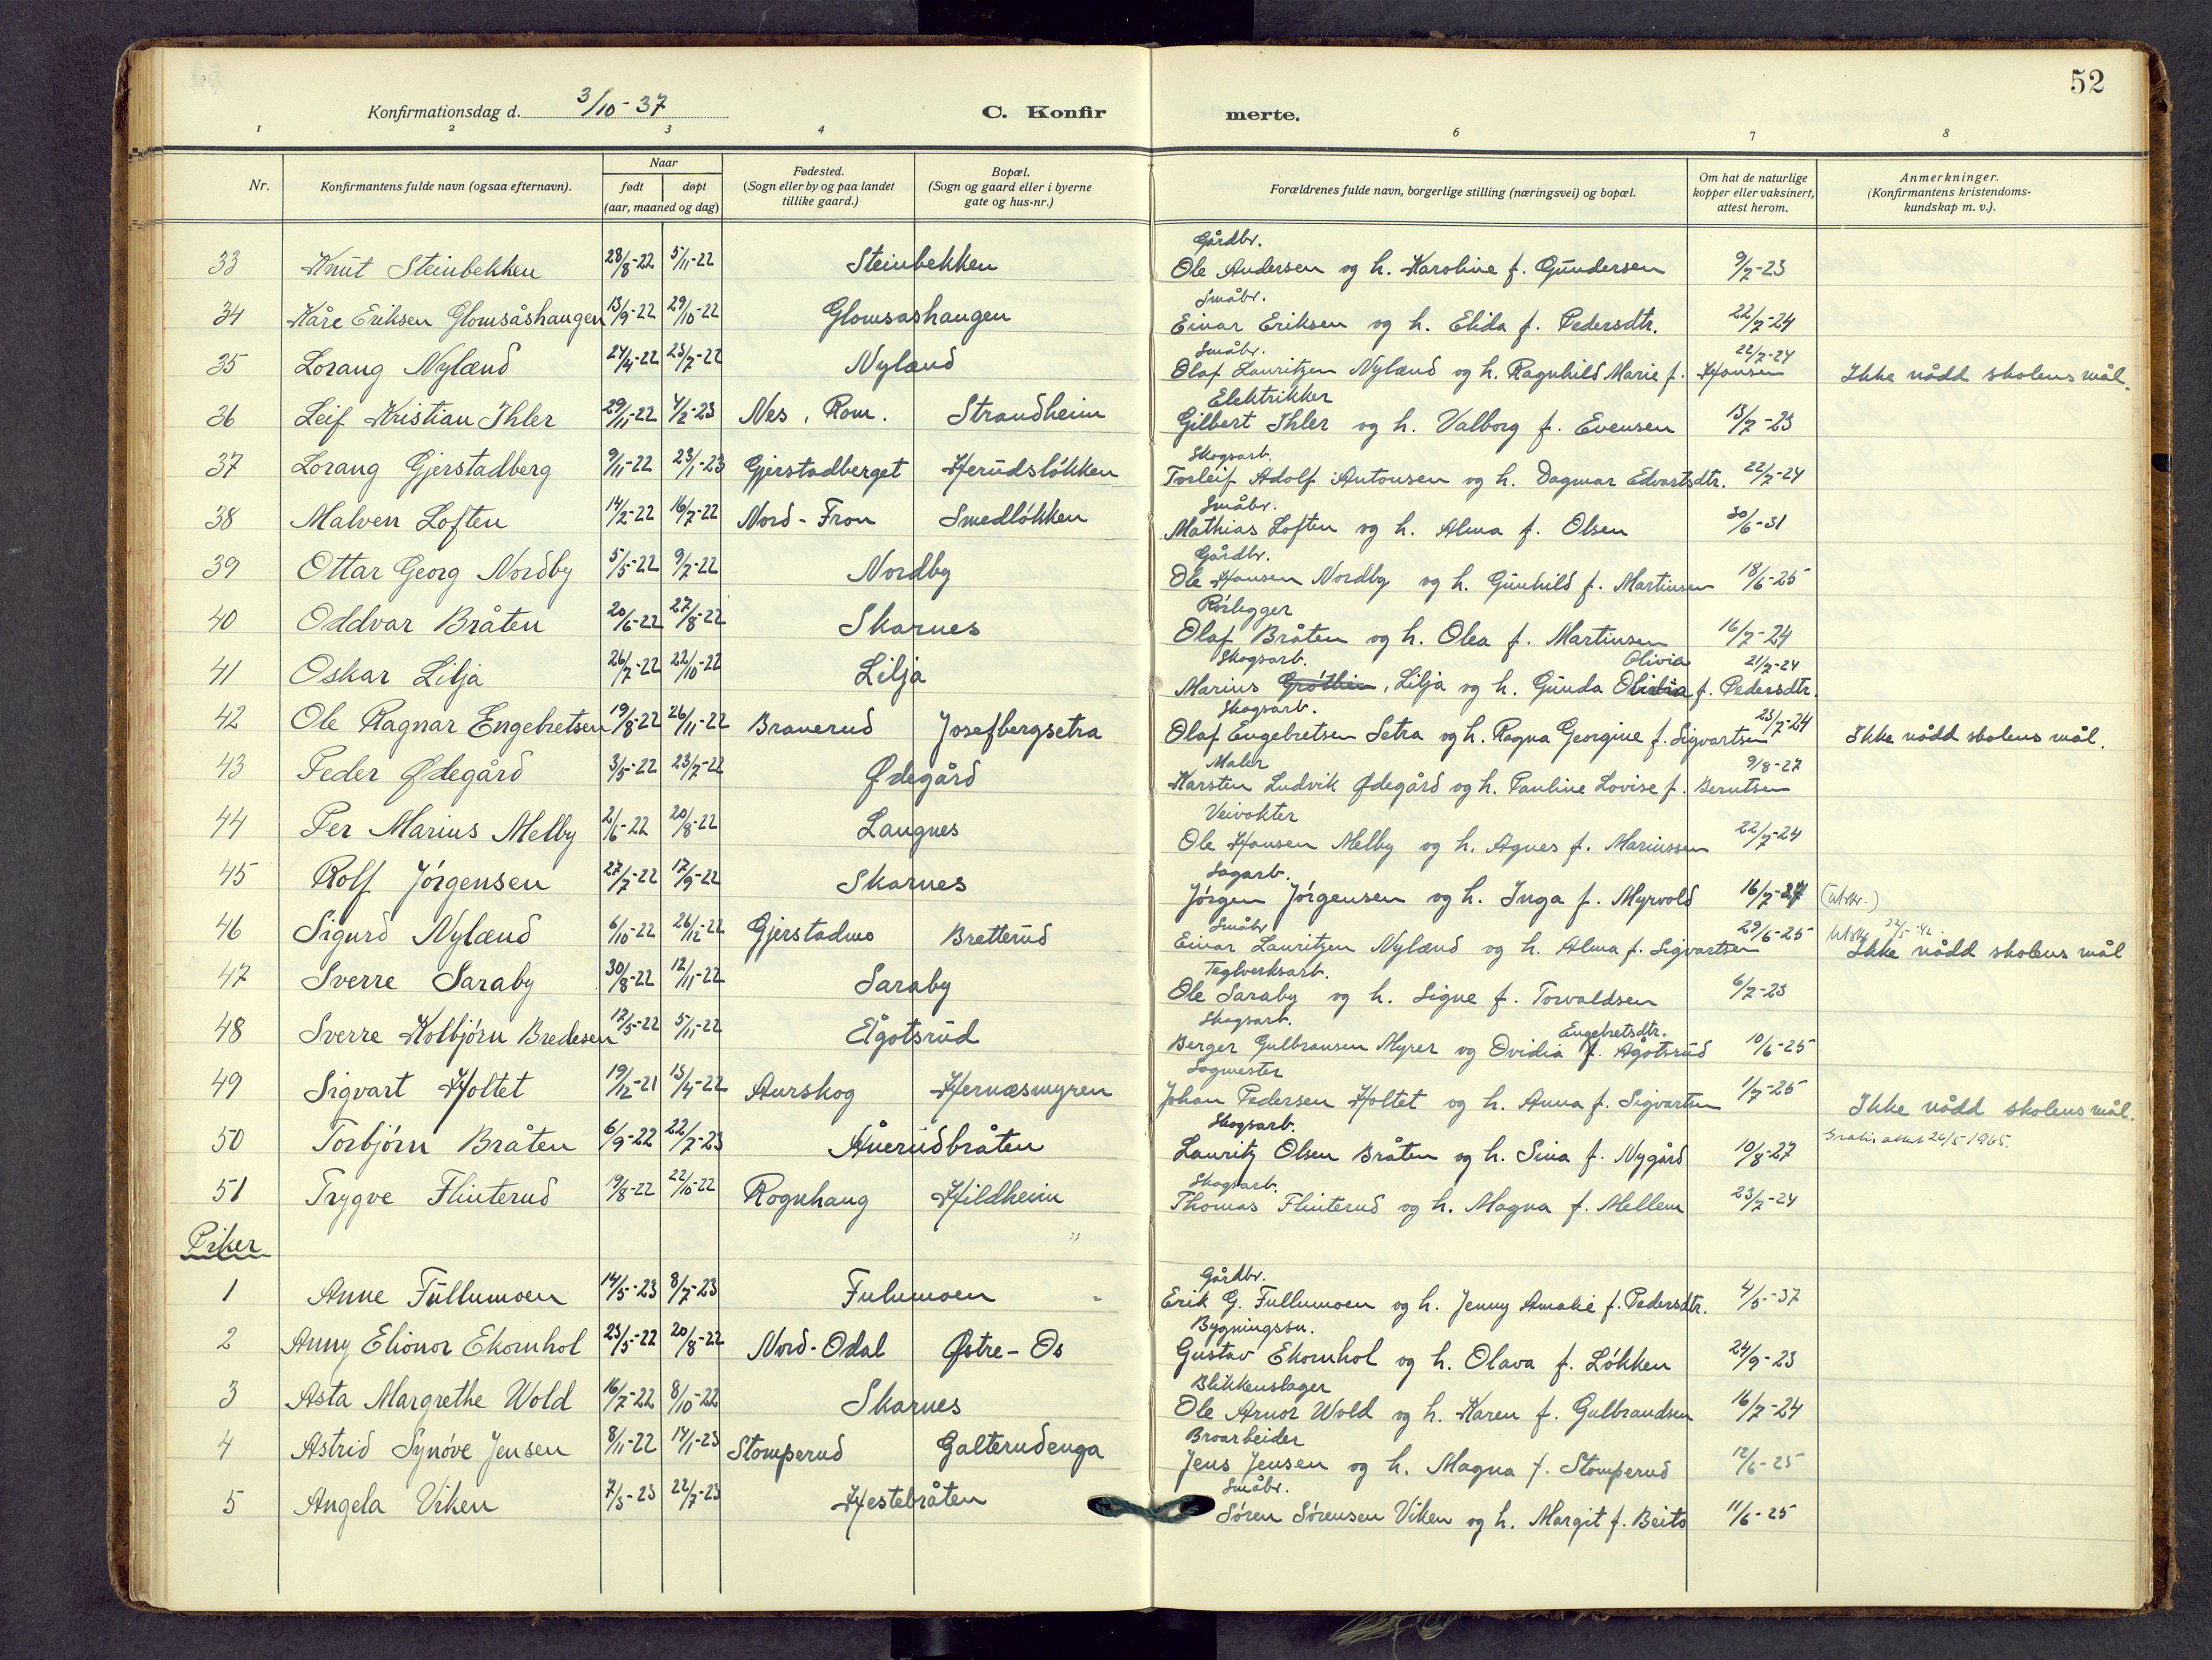 52
Konfirmationsdag d. 3/10-37
C. Konfirmerte.
1 2 3 4 6 7 8
Nr.
Konfirmantens fulde navn (ogsaa efternavn).
Naar
født døpt
(aar, maaned og dag)
Fødested.
(Sogn eller by og paa landet
tillike gaard.)
Bopæl.
(Sogn og gaard eller i byerne
gate og hus-nr.)
Forældrenes fulde navn, borgerlige stilling (næringsvei) og bopæl.
Om hat de naturlige
kopper eller vaksinert,
attest herom.
Anmerkninger.
(Konfirmantens kristendoms-
kundskap m. v.).
Gårdbr.
33 Knut Steinbekken 28/8-22 5/11-22 Steinbekken Ole Andersen og h. Karoline f. Gundersen 9/7-23
Småbr.
34 Kåre Eriksen Glomsåshaugen 13/9-22 29/10-22 Glomsåshaugen Einar Eriksen og h. Elida f. Pedersdtr. 22/7-24
Småbr. 22/7-24
35 Lorang Nylænd 24/4-22 23/7-22 Nylænd Olaf Lauritzen Nylænd og h. Ragnhild Marie f. Hansen Ikke nådd skolens mål.
Elektrikker
36 Leif Kristian Ihler 29/11-22 4/2-23 Nes, Rom. Strandheim Gilbert Ihler og h. Valborg f. Evensen 13/7-23
Skogsarb.
37 Lorang Gjerstadberg 9/11-22 23/1-23 Gjerstadberget Herudsløkken Torleif Adolf Antonsen og h. Dagmar Edvartsdtr. 22/7-24
Småbr.
38 Malven Loften 14/2-22 16/7-22 Nord-Fron Smedløkken Mathias Loften og h. Alma f. Olsen 30/6-31
Gårdbr.
39 Ottar Georg Nordby 5/5-22 9/7-22 Nordby Ole Hansen Nordby og h. Gunhild f. Martinsen 18/6-25
Rørlegger
40 Oddvar Bråten 20/6-22 27/8-22 Skarnes Olaf Bråten og h. Olea f. Martinsen 16/7-24
Skogsarb. Olivia 21/7-24
41 Oskar Lilja 26/7-22 22/10-22 Lilja Marius Lilja og h. Gunda f. Pedersdtr.
Skogsarb.
42 Ole Ragnar Engebretsen 19/8-22 26/11-22 Branerud Josefbergsetra Olaf Engebretsen Setra og h. Ragna Georgine f. Sigvartsen 23/7-24 Ikke nådd skolens mål.
Maler 9/8-27
43 Peder Ødegård 3/5-22 23/7-22 Ødegård Karsten Ludvik Ødegård og h. Pauline Lovise f. Berntsen
Veivokter
44 Per Marius Melby 2/6-22 20/8-22 Langnes Ole Hansen Melby og h. Agnes f. Mariussen 22/7-24
Sagarb.
45 Rolf Jørgensen 27/7-22 17/9-22 Skarnes Jørgen Jørgensen og h. Inga f. Myrvold 16/7-24 (utskr.)
Småbr. Utskr. 22/5-42.
46 Sigurd Nylænd 6/10-22 26/12-22 Gjerstadmo Bretterud Einar Lauritzen Nylænd og h. Alma f. Sigvartsen 29/6-25 Ikke nådd skolens mål
Teglverksarb.
47 Sverre Saraby 30/8-22 12/11-22 Saraby Ole Saraby og h. Signe f. Torvaldsen 6/7-23
Skogsarb. Engebretsdtr.
48 Sverre Kolbjørn Bredesen 17/5-22 5/11-22 Ågotsrud Berger Gulbransen Myrer og Ovidia f. Ågotsrud 10/6-25
Sagmester
49 Sigvart Holtet 19/12-21 15/4-22 Aurskog Hernæsmyren Johan Pedersen Holtet og h. Anna f. Sigvartsen 1/7-25 Ikke nådd skolens mål.
Skogsarb. Gratis attest 26/5 1965.
50 Torbjørn Bråten 6/9-22 22/7-23 Åuerudbråten Lauritz Olsen Bråten og h. Sina f. Nygård 10/8-27
Skogsarb.
51 Trygve Flinterud 19/8-22 22/10-22 Rognhaug Hildheim Thomas Flinterud og h. Magna f. Mellem 23/7-24
Piker
Gårdbr.
1 Anne Fullumoen 14/5-23 8/7-23 Fulumoen Erik G. Fullumoen og h. Jenny Amalie f. Pedersdtr. 4/5-37
Bygningssn.
2 Anny Elionor Ekornhol 23/5-22 20/8-22 Nord-Odal Østre-Os Gustav Ekornhol og h. Olava f. Løkken 24/9-23
Blikkenslager
3 Asta Margrethe Wold 16/7-22 8/10-22 Skarnes Ole Arnor Wold og h. Karen f. Gulbrandsen 16/7-24
Broarbeider
4 Astrid Synøve Jensen 8/11-22 14/1-23 Stomperud Galterudenga Jens Jensen og h. Magna f. Stomperud 12/6-25
Småbr.
5 Angela Viken 7/3-23 22/7-23 Hestebråten Søren Sørensen Viken og h. Margit f. Beito 11/6-25